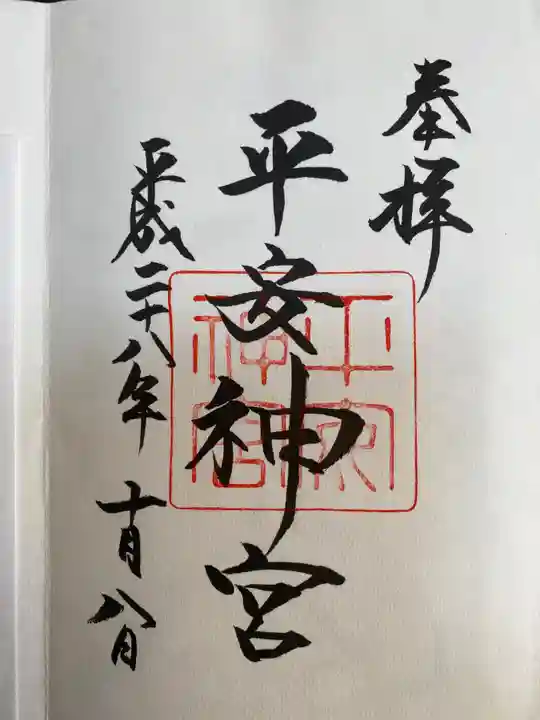 奉拝
平安神宮
平安神宮
平成二十八年 十月八日